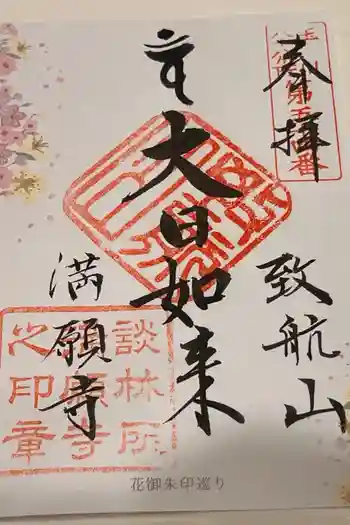 奉拝
致航山
大日如来
満願寺
談林所
満願寺
之印章
花御朱印巡り